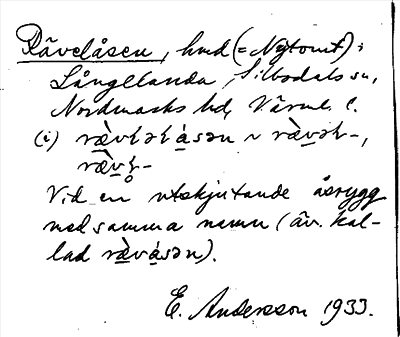 Rävelåsen, hmd (= Nytomt) i
Långelanda, Silbodals sn,
Nordmarks hd, Värml. l.
(i) ræ̀vəlá̱sən ~ ræ̀vəl-,
ræ̀vl-
Vid en utskjutande åsrygg
med samma namn (äv. kal-
lad ræ̀vá̱sən).
E. Andersson 1933.